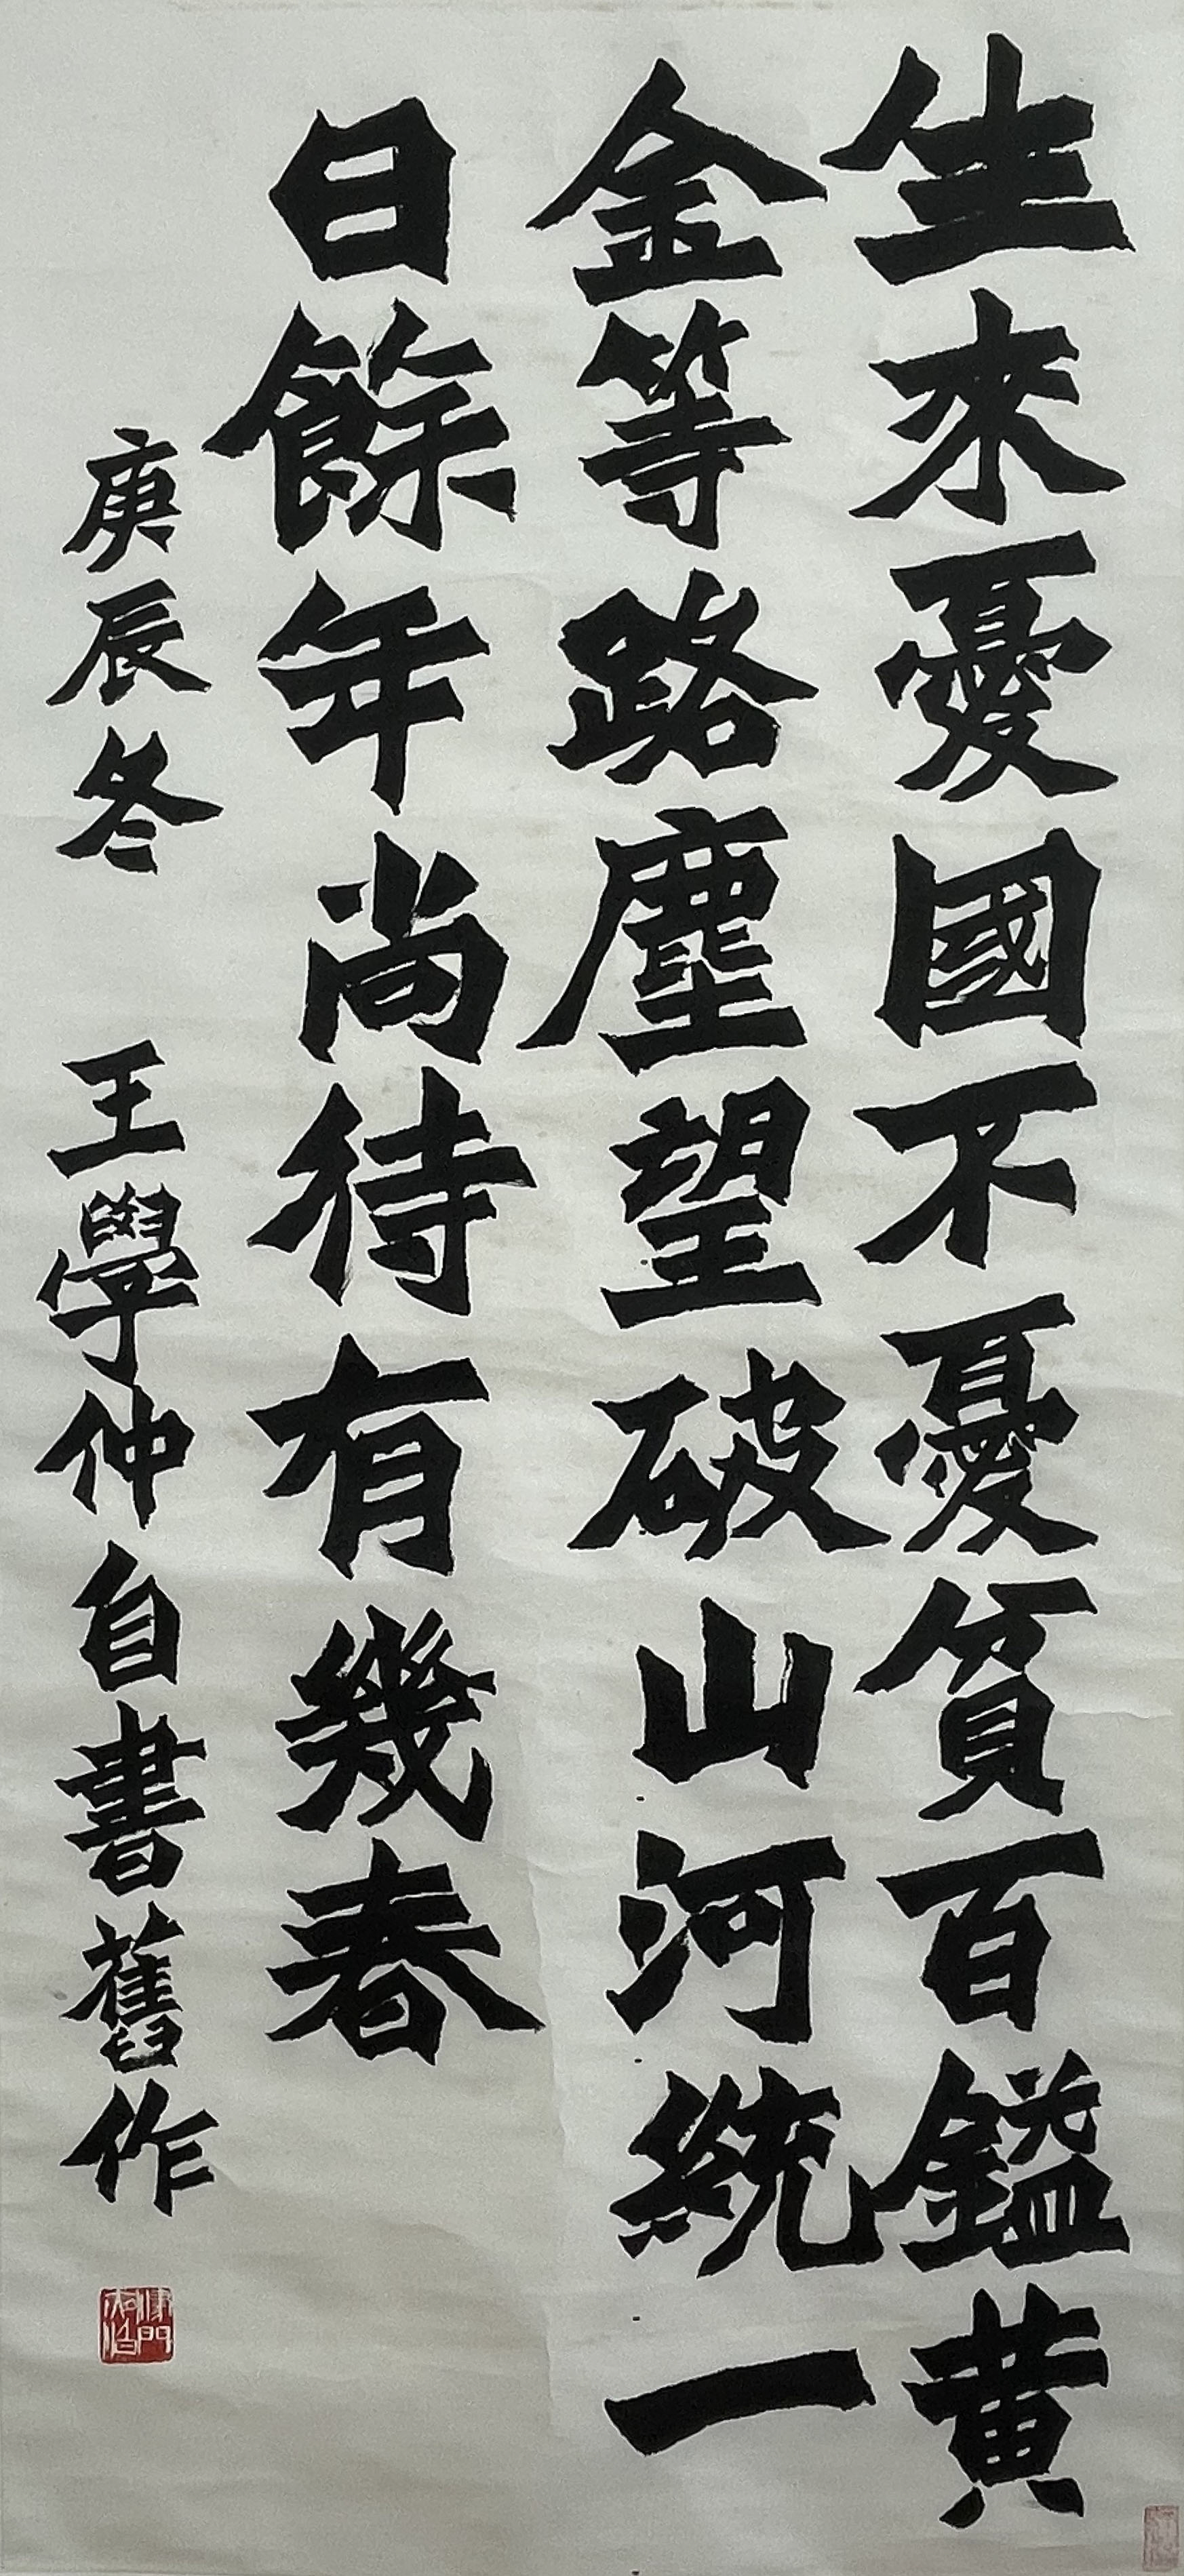 生來憂國不憂貧百鎰黃
金等路塵望破山河統一
日餘年尚待有幾春
庚辰冬 王學仲自書舊作